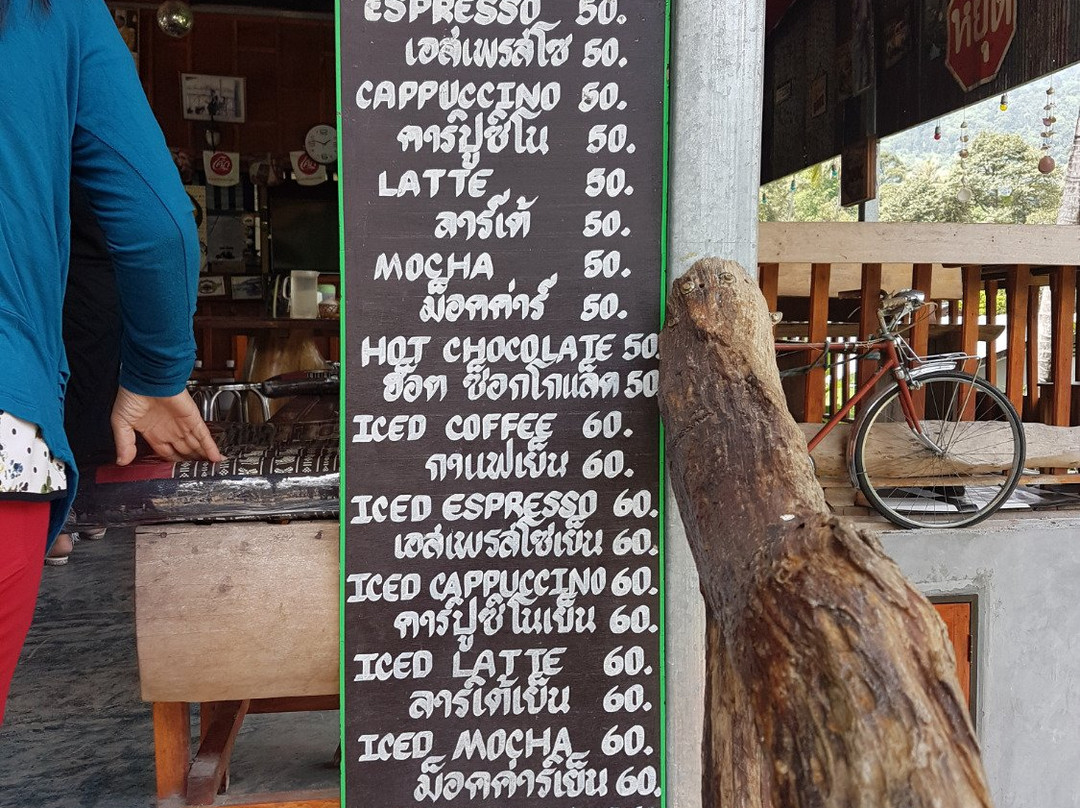 ESPRESSO 50.
เอส์เพรสโซ 50.
CAPPUCCINO 50.
คาร์ปูชิโน 50.
LATTE 50.
ลาร์เต้ 50.
MOCHA 50.
ม็อคค่าร์ 50.
HOT CHOCOLATE 50.
ฮ๊อต ช็อกโกแล็ต 50
ICED COFFEE 60.
กาแฟเย็น 60.
ICED ESPRESSO 60.
เอส์เพรสโซ่เย็น 60.
ICED CAPPUCCINO 60.
คาร์ปูชิโนเย็น 60.
ICED LATTE 60.
ลาร์เต้เย็น 60.
ICED MOCHA 60.
ม็อคค่าร์เย็น 60.
หยุด